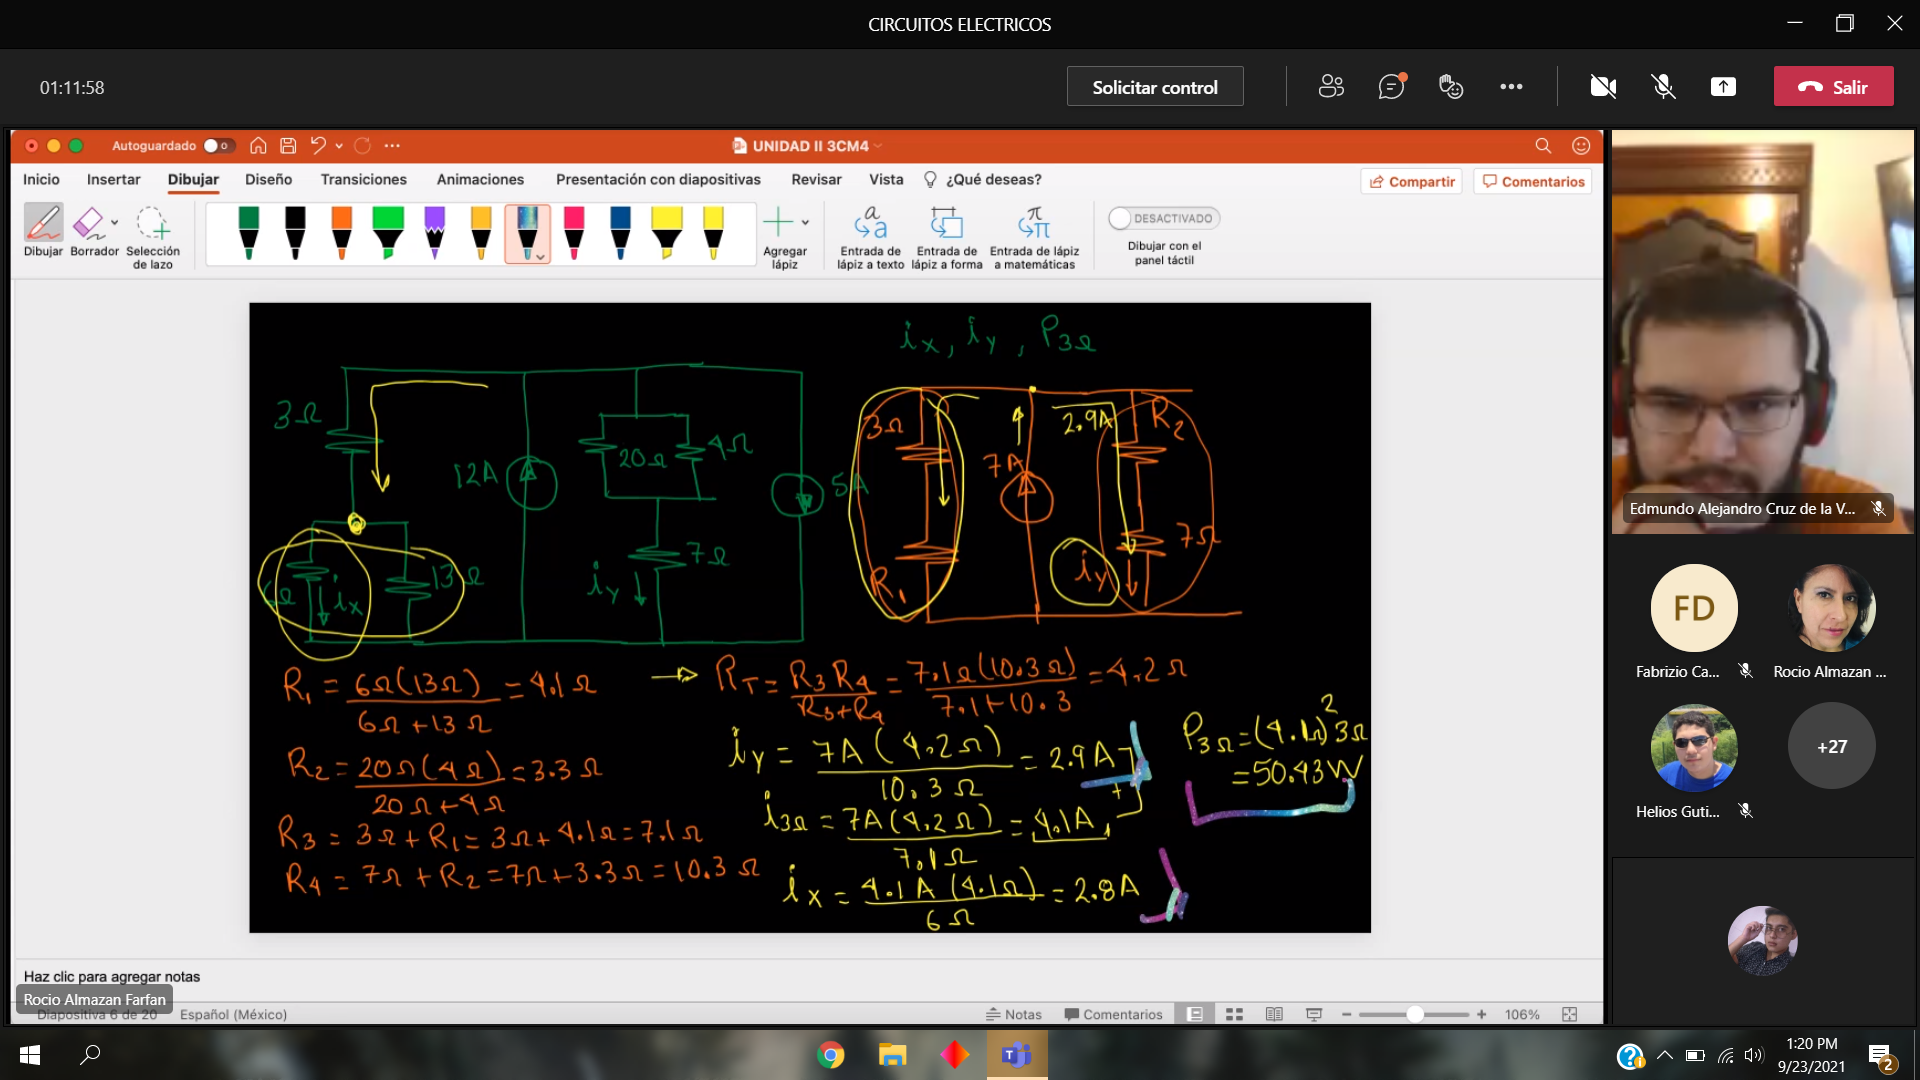 CIRCUITOS ELECTRICOS
01:11:58
Solicitar control
Salir
Autoguardado
UNIDAD II 3CM4
Inicio Insertar Dibujar Diseño Transiciones Animaciones Presentación con diapositivas Revisar Vista ¿Qué deseas? Compartir Comentarios
Dibujar Borrador Selección de lazo
Agregar lápiz
Entrada de lápiz a texto
Entrada de lápiz a forma
Entrada de lápiz a matemáticas
DESACTIVADO
Dibujar con el panel táctil
ix, iy, P3Ω
3Ω
12A
20Ω
4Ω
5A
7Ω
iy
ix
13Ω
3Ω
7A
2.9A
R2
7Ω
iy
R1
R1 = 6Ω(13Ω) / 6Ω+13Ω = 4.1Ω
R2 = 20Ω(4Ω) / 20Ω+4Ω = 3.3Ω
R3 = 3Ω + R1 = 3Ω + 4.1Ω = 7.1Ω
R4 = 7Ω + R2 = 7Ω + 3.3Ω = 10.3Ω
→ RT = R3 R4 / R3+R4 = 7.1Ω(10.3Ω) / 7.1+10.3 = 4.2Ω
iy = 7A(4.2Ω) / 10.3Ω = 2.9A
+
i3Ω = 7A(4.2Ω) / 7.1Ω = 4.1A
ix = 4.1A(4.1Ω) / 6Ω = 2.8A
= 50.43W
Haz clic para agregar notas
Rocio Almazan Farfan
Diapositiva 6 de 20 Español (México)
Notas Comentarios 106%
Edmundo Alejandro Cruz de la V...
FD
Fabrizio Ca...
Rocio Almazan ...
Helios Guti...
+27
1:20 PM
9/23/2021
2